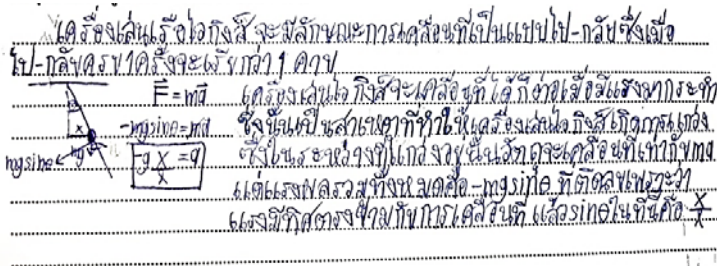 เครื่องเล่นเรือไวกิงส์ จะมีลักษณะการเคลื่อนที่เป็นแบบไป-กลับซึ่งเมื่อ
ไป-กลับครบ 1 ครั้งจะเรียกว่า 1 คาบ
F = ma เครื่องเล่นไวกิงส์จะเคลื่อนที่ได้ก็ต่อเมื่อมีแรงมากระทำ
-mgsinθ = ma ซึ่งนั่นเป็นสาเหตุที่ทำให้เครื่องเล่นไวกิงส์เกิดการแกว่ง
mgsinθ mg -g x/x = a ซึ่งในระหว่างที่แกว่งอยู่นั้นวัตถุจะเคลื่อนที่เท่ากับ ma
แต่แรงผลรวมทั้งหมดคือ -mgsinθ ที่ติดลบเพราะว่า
แรงมีทิศตรงข้ามกับการเคลื่อนที่ แล้ว sinθ ในที่นี้คือ x/x